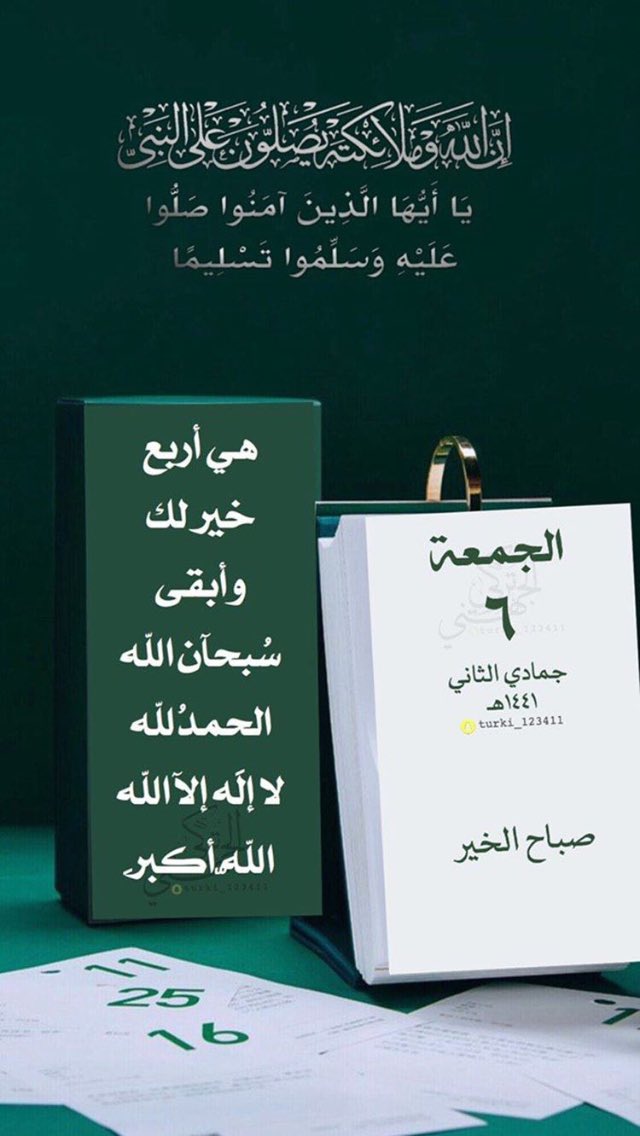 إِنَّ اللَّهَ وَمَلَائِكَتَهُ يُصَلُّونَ عَلَى النَّبِيِّ
يَا أَيُّهَا الَّذِينَ آمَنُوا صَلُّوا
عَلَيْهِ وَسَلِّمُوا تَسْلِيمًا
هي أربع
خير لك
وأبقى
سُبحآن اللّه
الحمدُللّه
لا إلَه إلآ اللّه
اللّه أكبر
turki_123411
الجمعة
٦
turki_123411
جمادي الثاني
١٤٤١هـ
turki_123411
صباح الخير
11
25
16